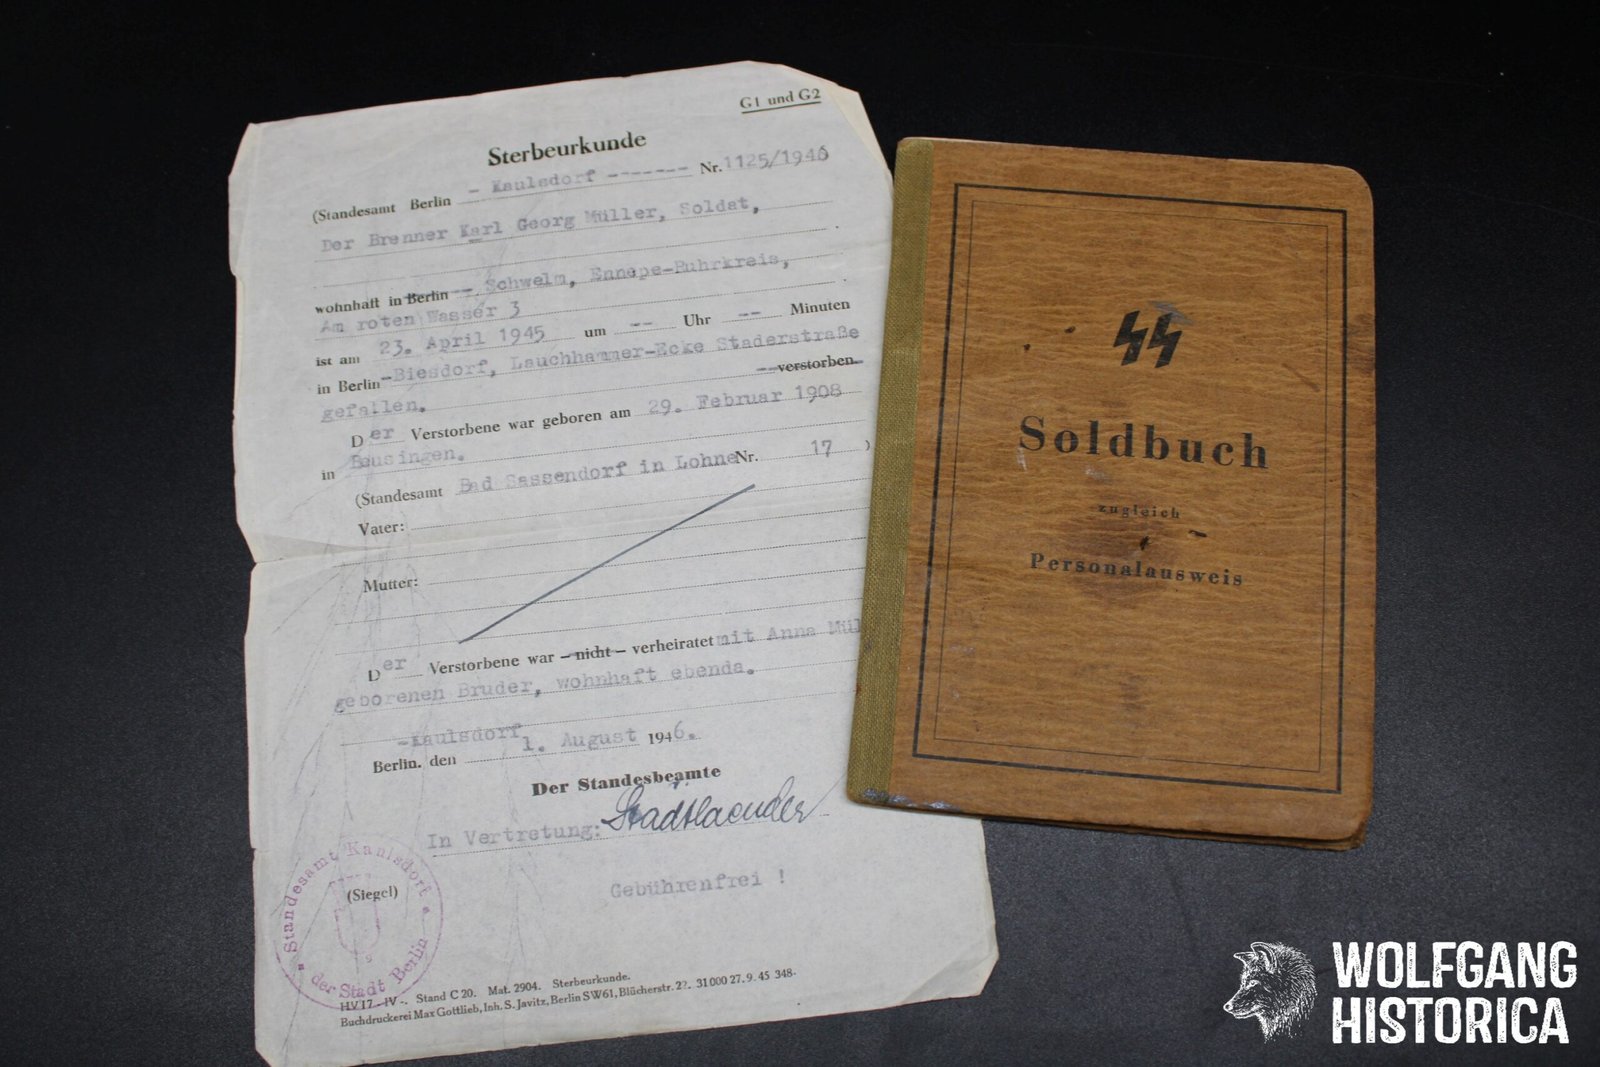 G1 und G2
Sterbeurkunde
(Standesamt Berlin - Kaulsdorf ------- Nr. 1125/1946
Der Brenner Karl Georg Müller, Soldat,
wohnhaft in Berlin -- Schwelm, Ennepe-Ruhrkreis,
Am roten Wasser 3
ist am 23. April 1945 um -- Uhr -- Minuten
in Berlin -Biesdorf, Lauchhammer-Ecke Staderstraße
verstorben
gefallen.
Der Verstorbene war geboren am 29. Februar 1908
in Beusingen.
(Standesamt Bad Sassendorf in Lohne Nr. 17 )
Vater:
Mutter:
Der Verstorbene war - nicht - verheiratet mit Anna Mül
geborenen Bruder, wohnhaft ebenda.
Berlin -Kaulsdorf, den 1. August 1946.
Der Standesbeamte
In Vertretung: Stadtlaender
(Siegel)
Gebührenfrei !
Standesamt Kaulsdorf
der Stadt Berlin
HV I 7 - IV -. Stand C 20. Mat. 2904. Sterbeurkunde.
Buchdruckerei Max Gottlieb, Inh. S. Javitz, Berlin SW61, Blücherstr. 22. 31000 27. 9. 45 348.
SS
Soldbuch
zugleich
Personalausweis
WOLFGANG
HISTORICA